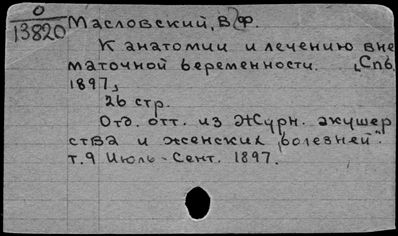 О
13820
Масловский, В. Ф.
К анатомии и лечению вне
маточной беременности. [Спб.
1897,]
26 стр.
Отд. отт. из Журн. акушер
ства и женских болезней".
т. 9 Июль-Сент. 1897.